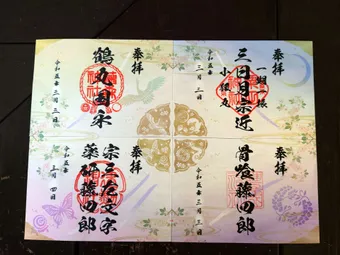 奉拝
三日月宗近
一期一振
小狐丸
令和五年三月三日
奉拝
鶴丸国永
令和五年三月三日
奉拝
骨喰藤四郎
令和五年三月三日
奉拝
宗三左文字
薬研藤四郎